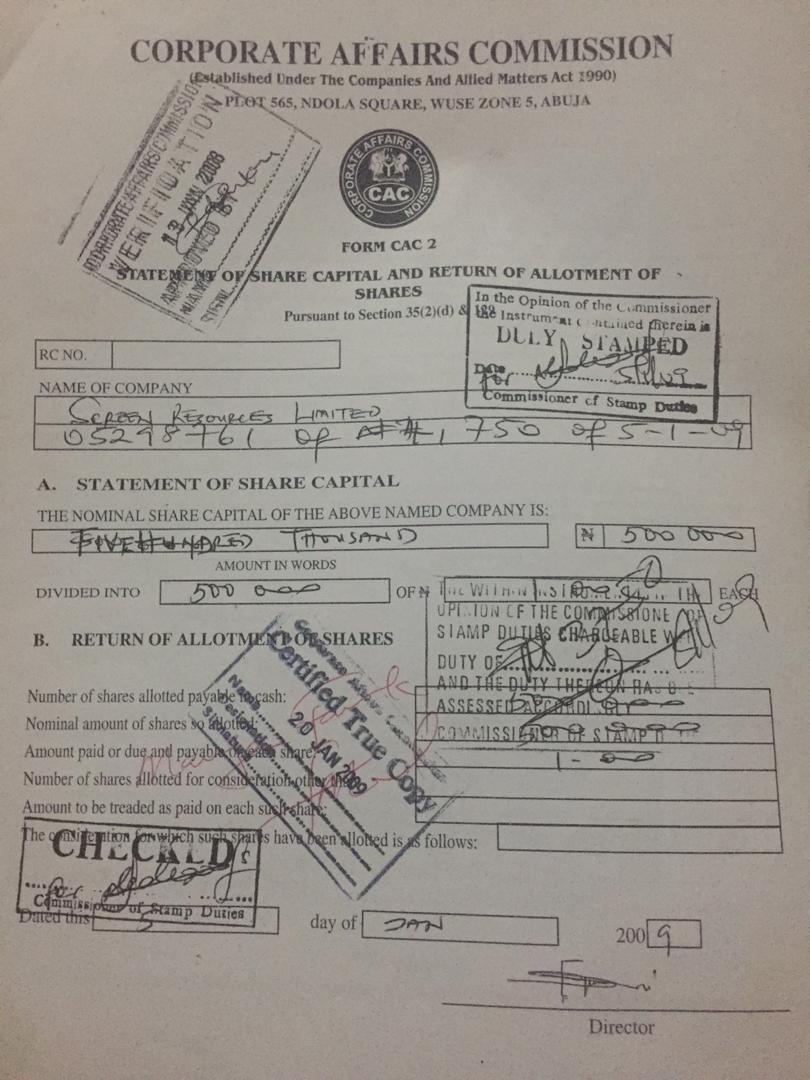 CORPORATE AFFAIRS COMMISSION
(Established Under The Companies And Allied Matters Act 1990)
PLOT 565, NDOLA SQUARE, WUSE ZONE 5, ABUJA
CORPORATE AFFAIRS COMMISSION
VERIFICATION
JAN
APPROVED BY
CORPORATE AFFAIRS COMMISSION
CAC
FORM CAC 2
STATEMENT OF SHARE CAPITAL AND RETURN OF ALLOTMENT OF
SHARES
Pursuant to Section 35(2)(d) &
In the Opinion of the Commissioner
the Instrument Contained therein is
DULY STAMPED
for 5/1/09
Commissioner of Stamp Duties
RC NO.
NAME OF COMPANY
SCREEN RESOURCES LIMITED
05298761 of 1,750 of 5-1-09
A. STATEMENT OF SHARE CAPITAL
THE NOMINAL SHARE CAPITAL OF THE ABOVE NAMED COMPANY IS:
FIVE HUNDRED THOUSAND ₦ 500 000
AMOUNT IN WORDS
DIVIDED INTO 500 000 OF ₦ EACH
THE WITHIN
OPINION OF THE COMMISSIONER OF
STAMP DUTIES CHARGEABLE
DUTY OF
AND THE DUTY THEREON HAS
ASSESSED ACCORDINGLY
COMMISSIONER OF STAMP
B. RETURN OF ALLOTMENT OF SHARES
Corporate Affairs Commission
Certified True Copy
Name
Designation
Signature
20 JAN 2009
Number of shares allotted payable in cash:
Nominal amount of shares so allotted:
Amount paid or due and payable on each share: 1-00
Number of shares allotted for consideration other than
Amount to be treaded as paid on each such share:
The consideration for which such shares have been allotted is as follows:
CHECKED
for
Commissioner of Stamp Duties
Dated this 5 day of JAN 2009
Director